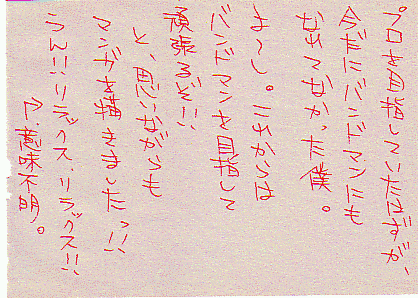 プロを目指していたはずが、
今だにバンドマンにも
なれてなかった僕。
ま～し。これからは
バンドマンを目指して
頑張るぞ!!
と、思いながらも
マンガを描きましたっ!!
うん!!リラックス、リラックス!!
↑意味不明。